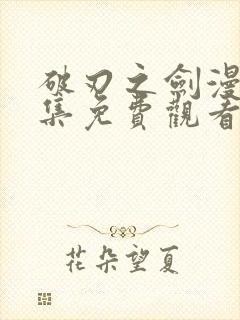 破刃之劍漫
集免費觀看
花朵望夏